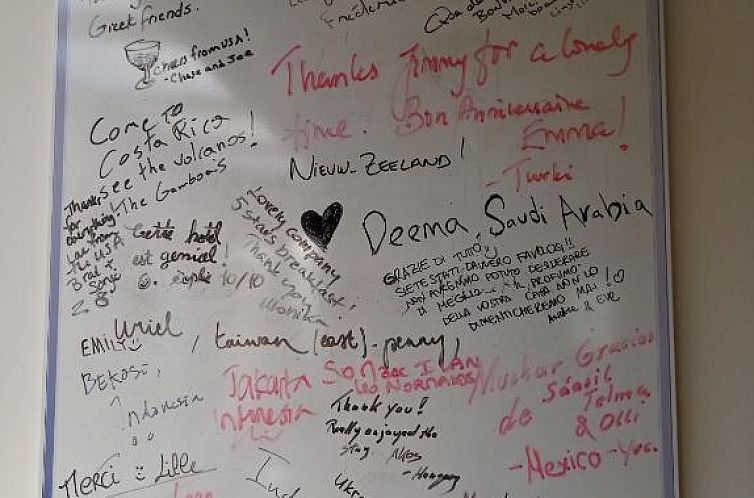 Greek friends.
Cheers from USA!
- Chase and Jae
Thanks Jimmy for a lovely
time. Bon Anniversaire
Emma!
- Turki
Come to
Costa Rica
see the volcanos!
- The Gamboas
NIEUW-ZEELAND!
Thanks
for
everything
Luv from
The USA
Brat +
Lovely company
5 stars breakfast!
Thank you
Monika
Deema, Saudi Arabia
Cette hotel
est genial!
10/10
GRAZIE DI TUTTO,
SIETE STATI DAVVERO FAVOLOSI!!
NON AVREMMO POTUTO DESIDERARE
DI MEGLIO... IL PROFUMO
DELLA VOSTRA CASA NON LO
DIMENTICHEREMO MAI!
EVE
Uriel
EMILY
, taiwan (east). penny,
BEKASI,
Indonesia
Jakarta
Intnesia
Thank you!
Really enjoyed the
stay
- Hungary
Muchas Gracias
de
Telma
& Olli
- Mexico -
Merci Lille
Ukr